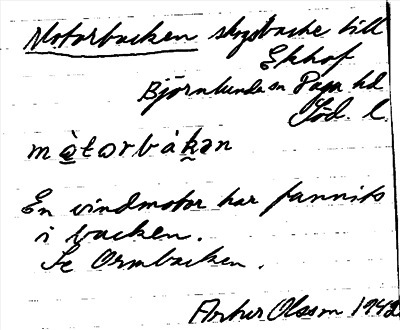 Motorbacken skogsbacke till
Ekhof
Björnlunda sn Daga hd
Söd. l.
mòtorbàkən
En vindmotor har funnits
i backen.
Se Ormbacken.
Artur Olsson 1942